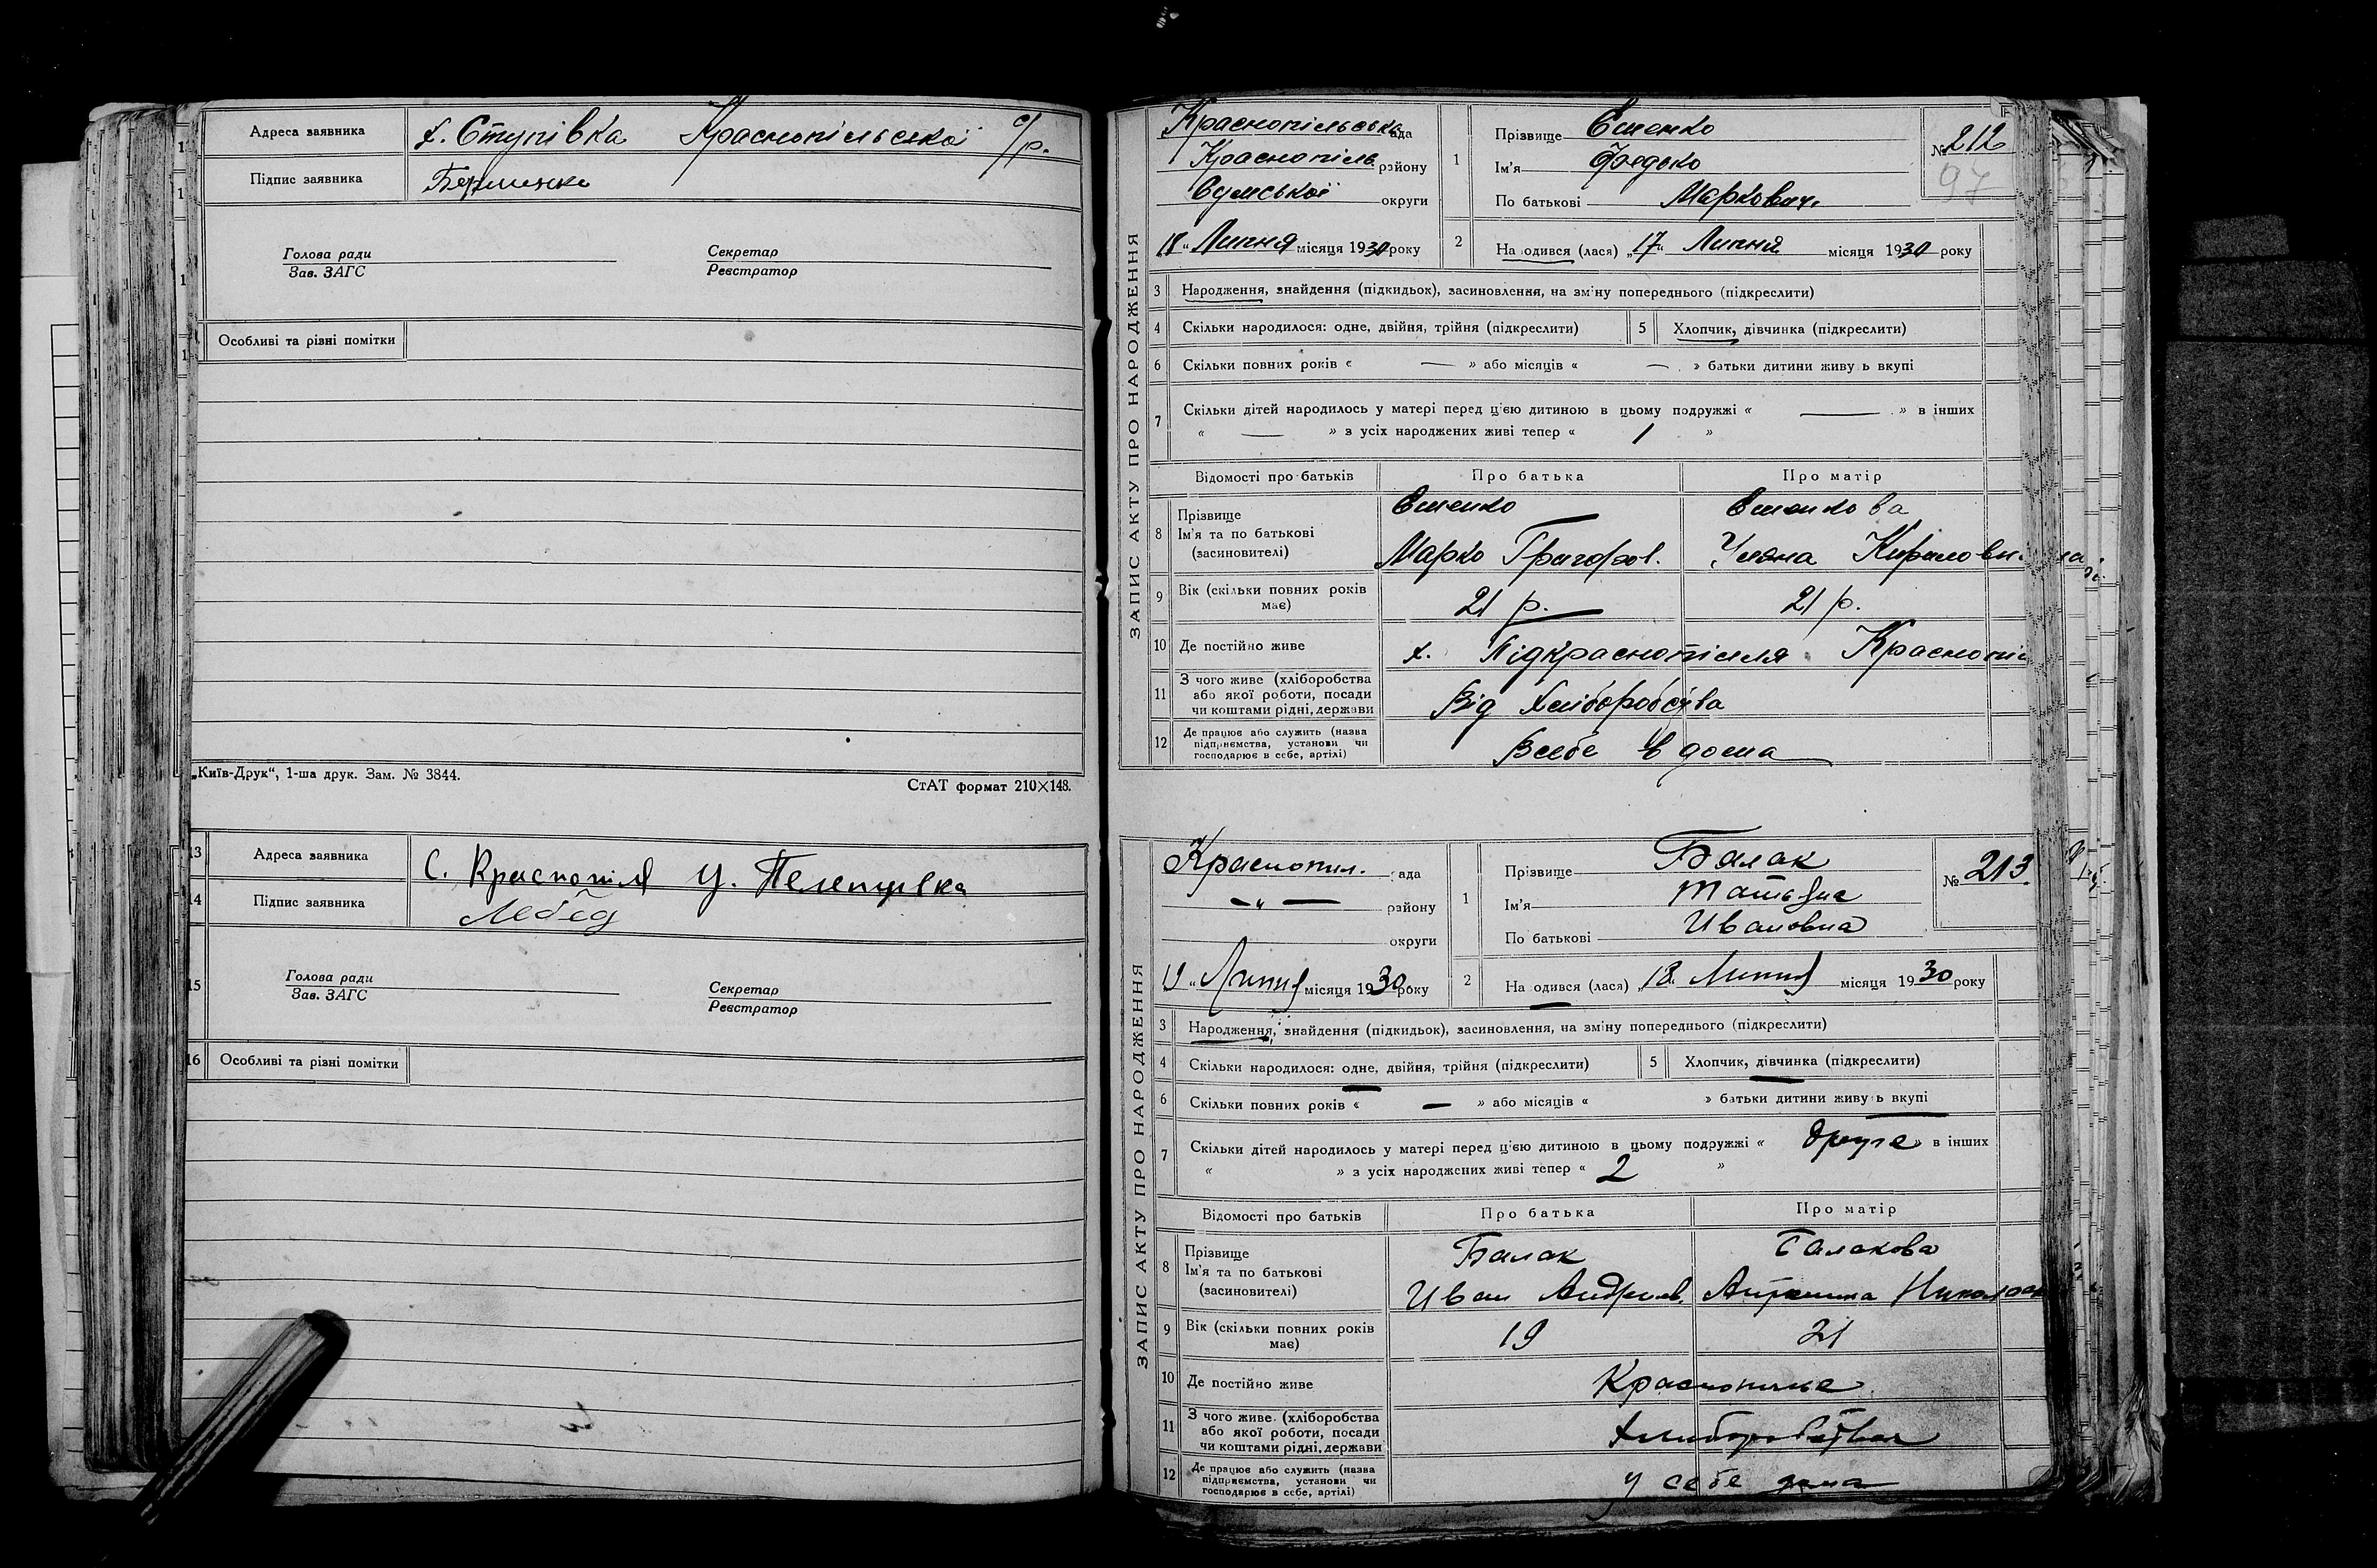 Адреса заявника х. Ступівка Краснопільської с/р.
Підпис заявника
Голова ради Секретар
Зав. ЗАГС Реєстратор
Особливі та різні помітки
„Київ-Друк“, 1-ша друк. Зам. № 3844. СтАТ формат 210×148.
13 Адреса заявника С. Краснопілля
14 Підпис заявника Лебед
15 Голова ради Секретар
Зав. ЗАГС Реєстратор
16 Особливі та різні помітки
ЗАПИС АКТУ ПРО НАРОДЖЕННЯ
Краснопільська рада
Краснопіль району
Сумської округи
18 „ Липня місяця 1930 року
1 Прізвище Єшенко
Ім'я Федько
По батькові Маркович
№ 212
97
2 На одився (лася) „17„ Липня місяця 1930 року
3 Народження, знайдення (підкидьок), засиновлення, на зміну попереднього (підкреслити)
4 Скільки народилося: одне, двійня, трійня (підкреслити) 5 Хлопчик, дівчинка (підкреслити)
6 Скільки повних років « — » або місяців « — » батьки дитини живу ь вкупі
7 Скільки дітей народилось у матері перед ц'єю дитиною в цьому подружжі « — » в інших
« — » з усіх народжених живі тепер « 1 »
Відомості про батьків Про батька Про матір
8 Прізвище Єшенко Єшенкова
Ім'я та по батькові
(засиновителі) Марко Григоров. Уляна Кириловн
9 Вік (скільки повних років має) 21 р. 21 р.
10 Де постійно живе х. Підкраснопілля Краснопі
11 З чого живе (хліборобства
або якої роботи, посади
чи коштами рідні, держави Від Хліборобства
12 Де працює або служить (назва
підприємства, установи чи
господарює в себе, артілі) Всебе в дома
ЗАПИС АКТУ ПРО НАРОДЖЕННЯ
Краснопил. рада
— „ — району
округи
19 „ Липня місяця 1930 року
1 Прізвище Балак
Ім'я Татьяна
По батькові Ивановна
№ 213
2 На одився (лася) „18„ Липня місяця 1930 року
3 Народження, знайдення (підкидьок), засиновлення, на зміну попереднього (підкреслити)
4 Скільки народилося: одне, двійня, трійня (підкреслити) 5 Хлопчик, дівчинка (підкреслити)
6 Скільки повних років « — » або місяців « » батьки дитини живу ь вкупі
7 Скільки дітей народилось у матері перед ц'єю дитиною в цьому подружжі « друге » в інших
« » з усіх народжених живі тепер « 2 »
Відомості про батьків Про батька Про матір
8 Прізвище Балак Балакова
Ім'я та по батькові
(засиновителі) Иван Андриев Николаев
9 Вік (скільки повних років має) 19 21
10 Де постійно живе Краснопилье
11 З чого живе (хліборобства
або якої роботи, посади
чи коштами рідні, держави
12 Де працює або служить (назва
підприємства, установи чи
господарює в себе, артілі) у себе дома